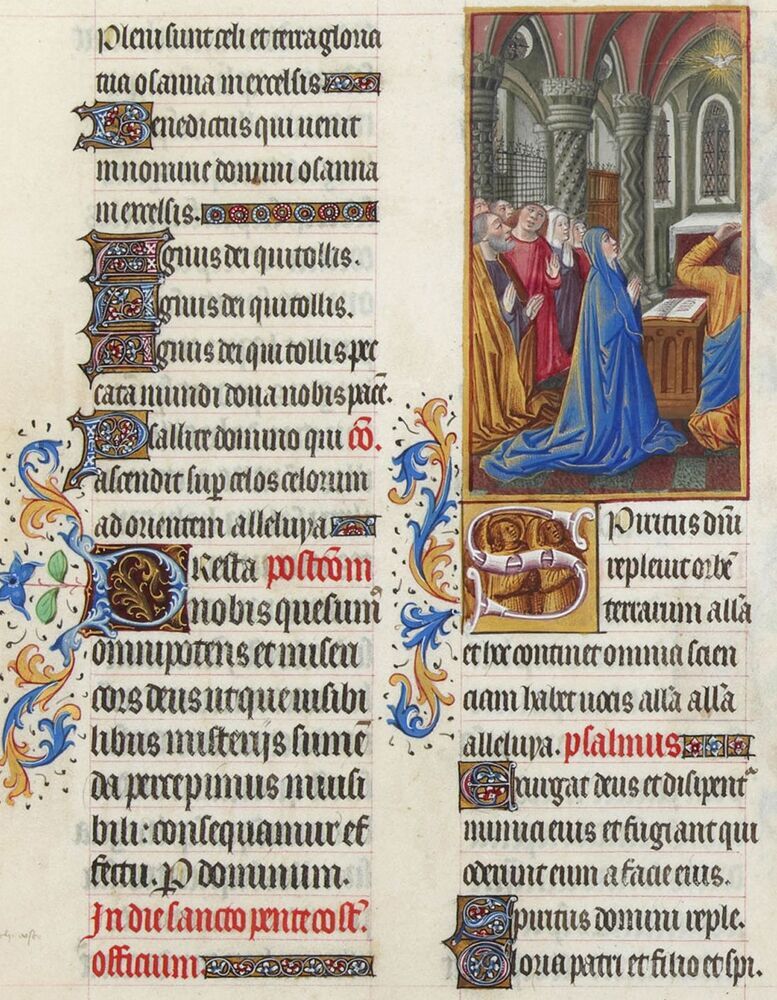 Pleni sunt celi et terra gloria
tua osanna in excelsis
Benedictus qui uenit
in nomine domini osanna
in excelsis.
Agnus dei qui tollis.
Agnus dei qui tollis.
Agnus dei qui tollis pec
cata mundi dona nobis pacē.
Psallite domino qui cō.
ascendit sup celos celorum
ad orientem alleluya
PResta postcōm
nobis quesum̄
omnipotens et miseri
cors deus ut que uisibi
libus misterijs sumē
da percepimus inuisi
bili: consequamur ef
fectu. P dominum.
In die sancto pentecost.
officium
Spiritus dn̄i
repleuit orbē
terrarum all̄a
et hoc continet omnia scien
ciam habet uocis all̄a all̄a
alleluya. psalmus
Exurgat deus et disipent
inimici eius et fugiant qui
oderunt eum a facie eius.
Spiritus domini reple.
Gloria patri et filio et spi.